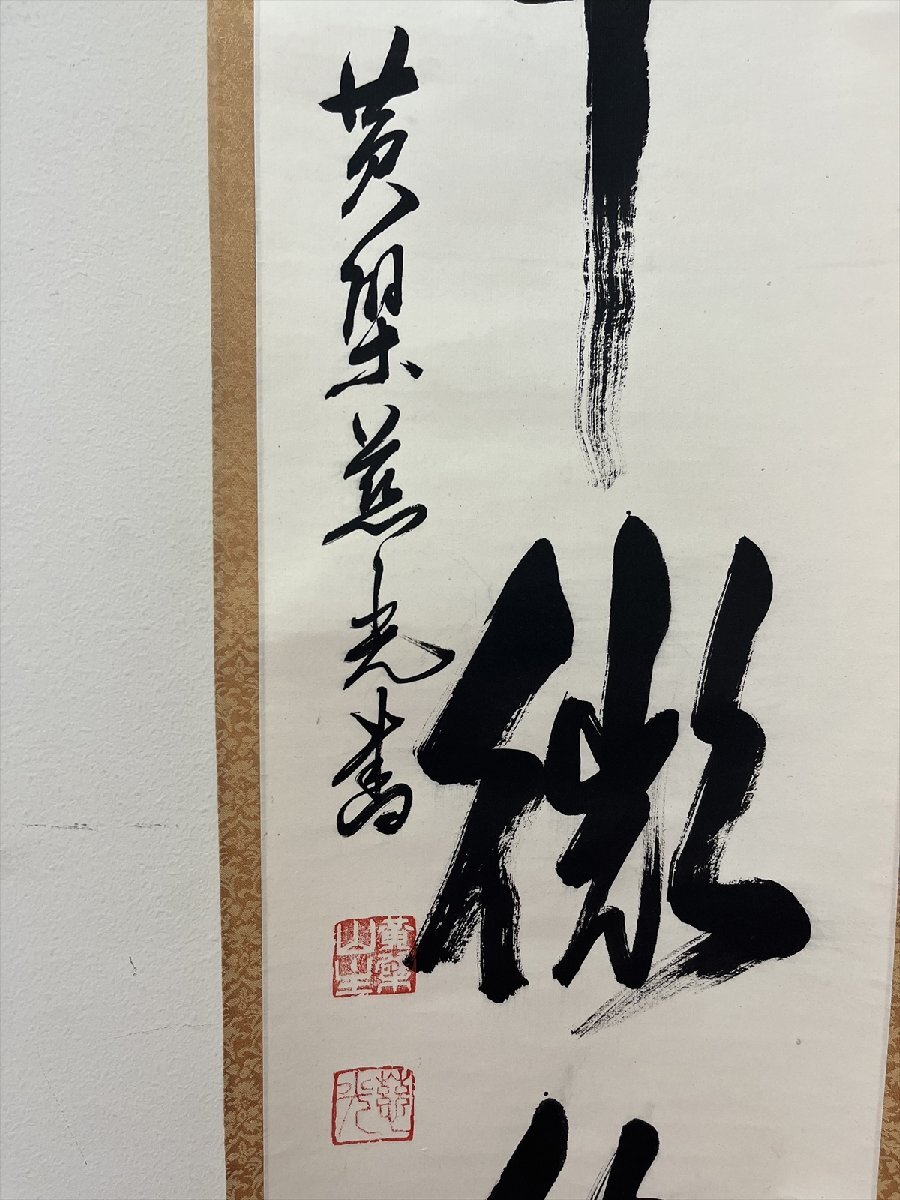 微
黄檗慈光書
黄檗山主
慈光